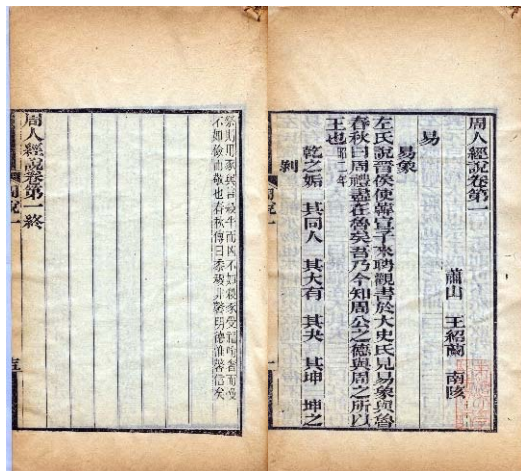 周人經說卷第一
蕭山 王紹蘭 南陔
易
易象
左氏說晉侯使韓宣子來聘觀書於大史氏見易象與魯
春秋曰周禮盡在魯矣吾乃今知周公之德與周之所以
王也昭二年
乾之姤 其同人 其大有 其夬 其坤 坤之
剝
周說一
一
用豕與言殺牛而凶不如殺豕受福喻奢而慢
不如儉而敬也春秋傳曰黍稷非馨明德惟馨信矣
周人經說卷第一終
周說一